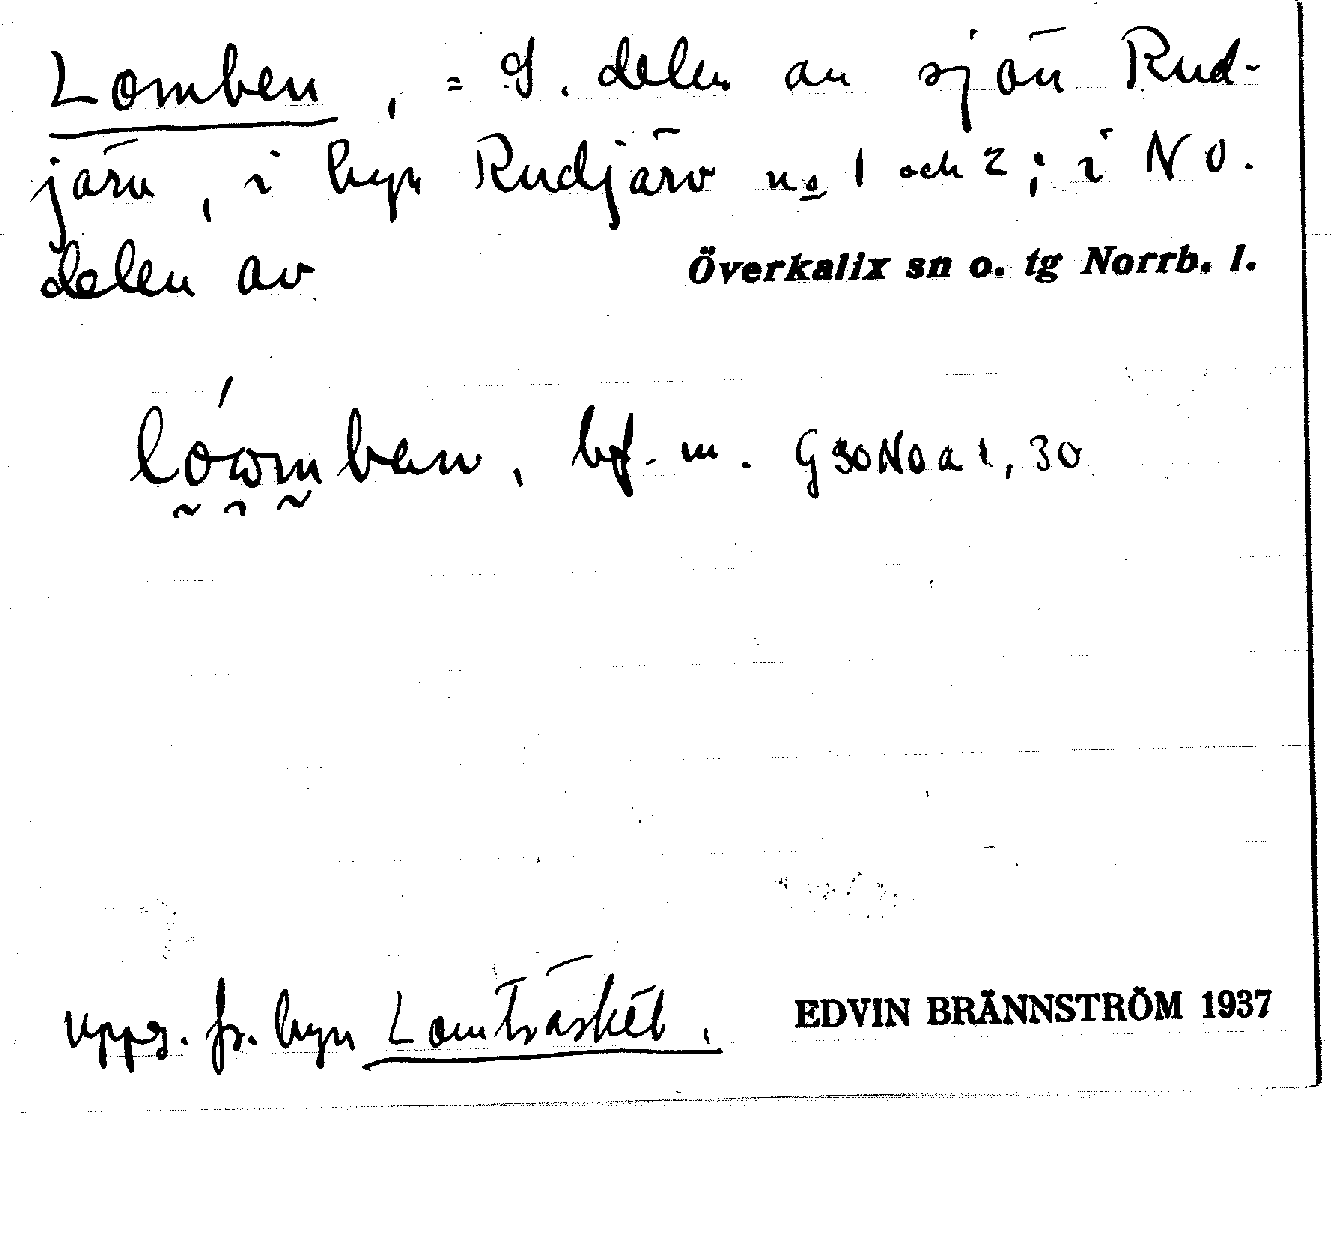 Lomben, = S. delen av sjön Rud-
järv, i byn Rudjärv no 1 och 2; i NO.
delen av Överkalix sn o. tg Norrb. l.
bf. m. G 30 No a 1, 30
Upps. fr. byn Lomträsket. EDVIN BRÄNNSTRÖM 1937